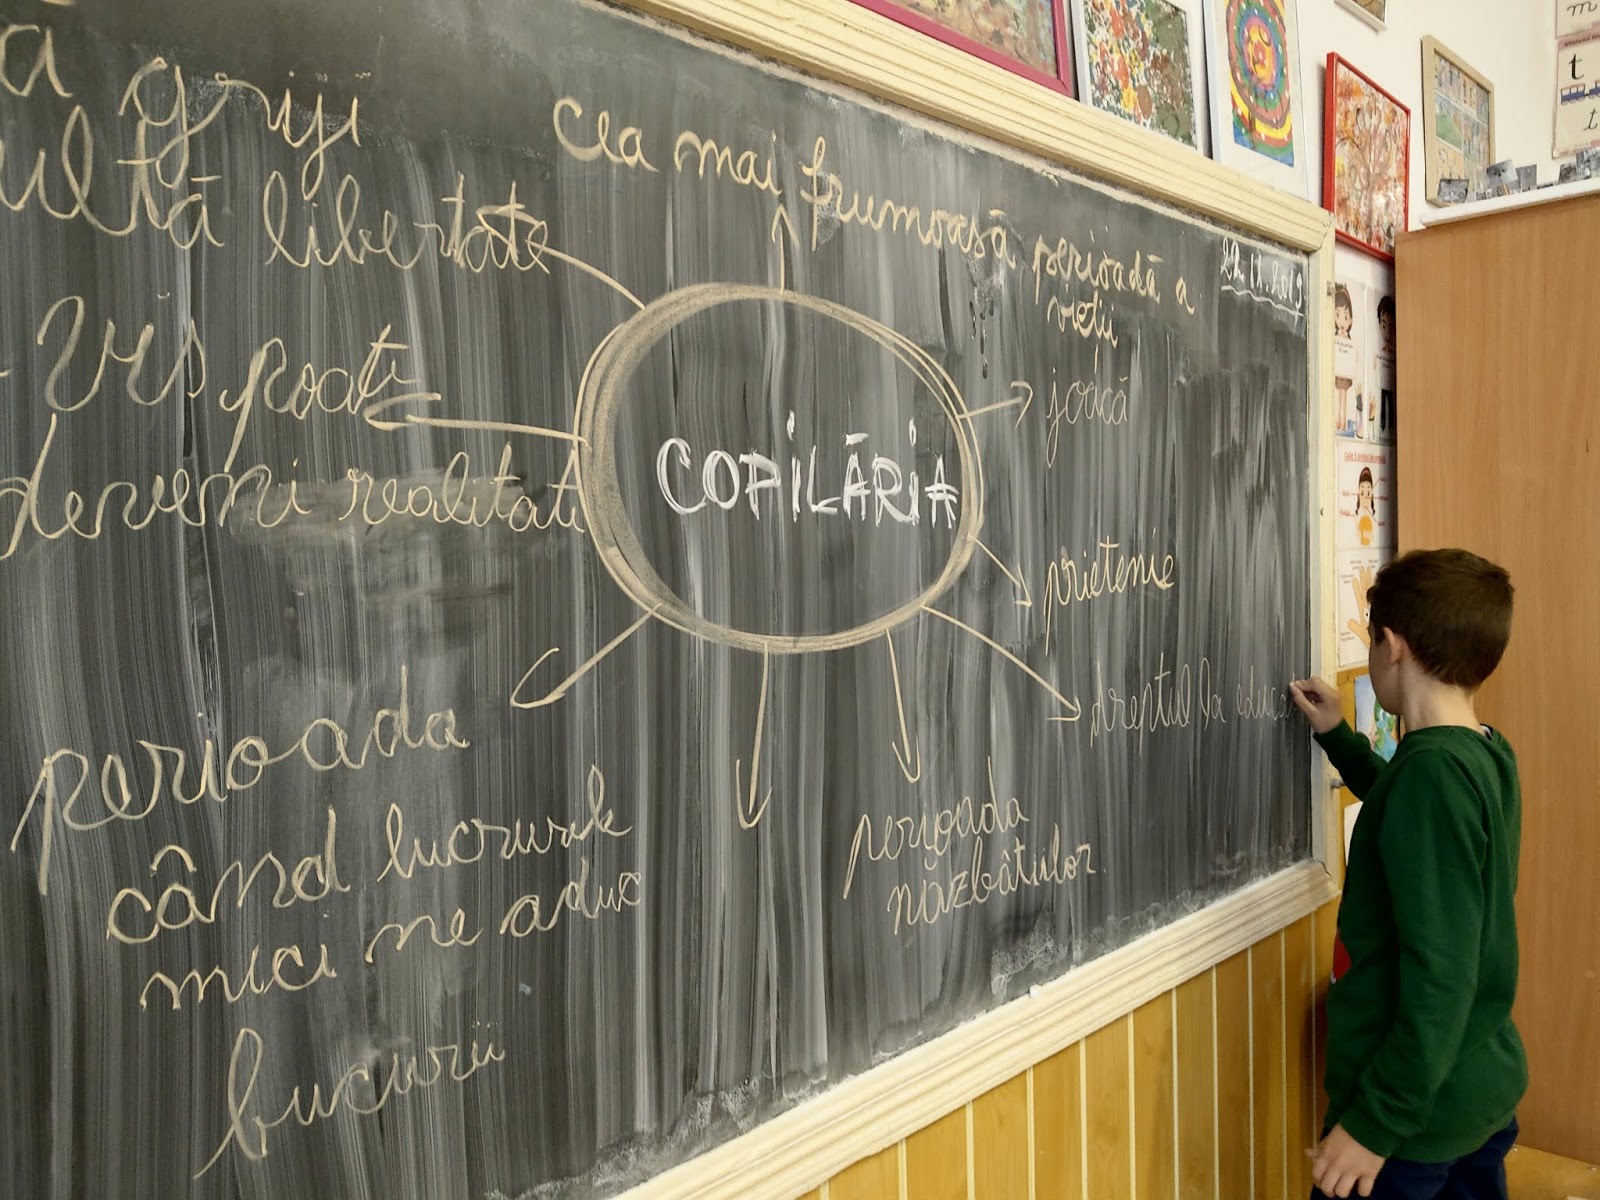 ă griji
ultă libertate
Cea mai frumoasă perioadă a
vieții
22.11.2019
- vis poate
deveni realitate
joacă
COPILĂRIA
prietenie
dreptul la educa
perioada
când lucrurile
mici ne aduc
bucurii
perioada
năzbâtiilor.
t
t
m